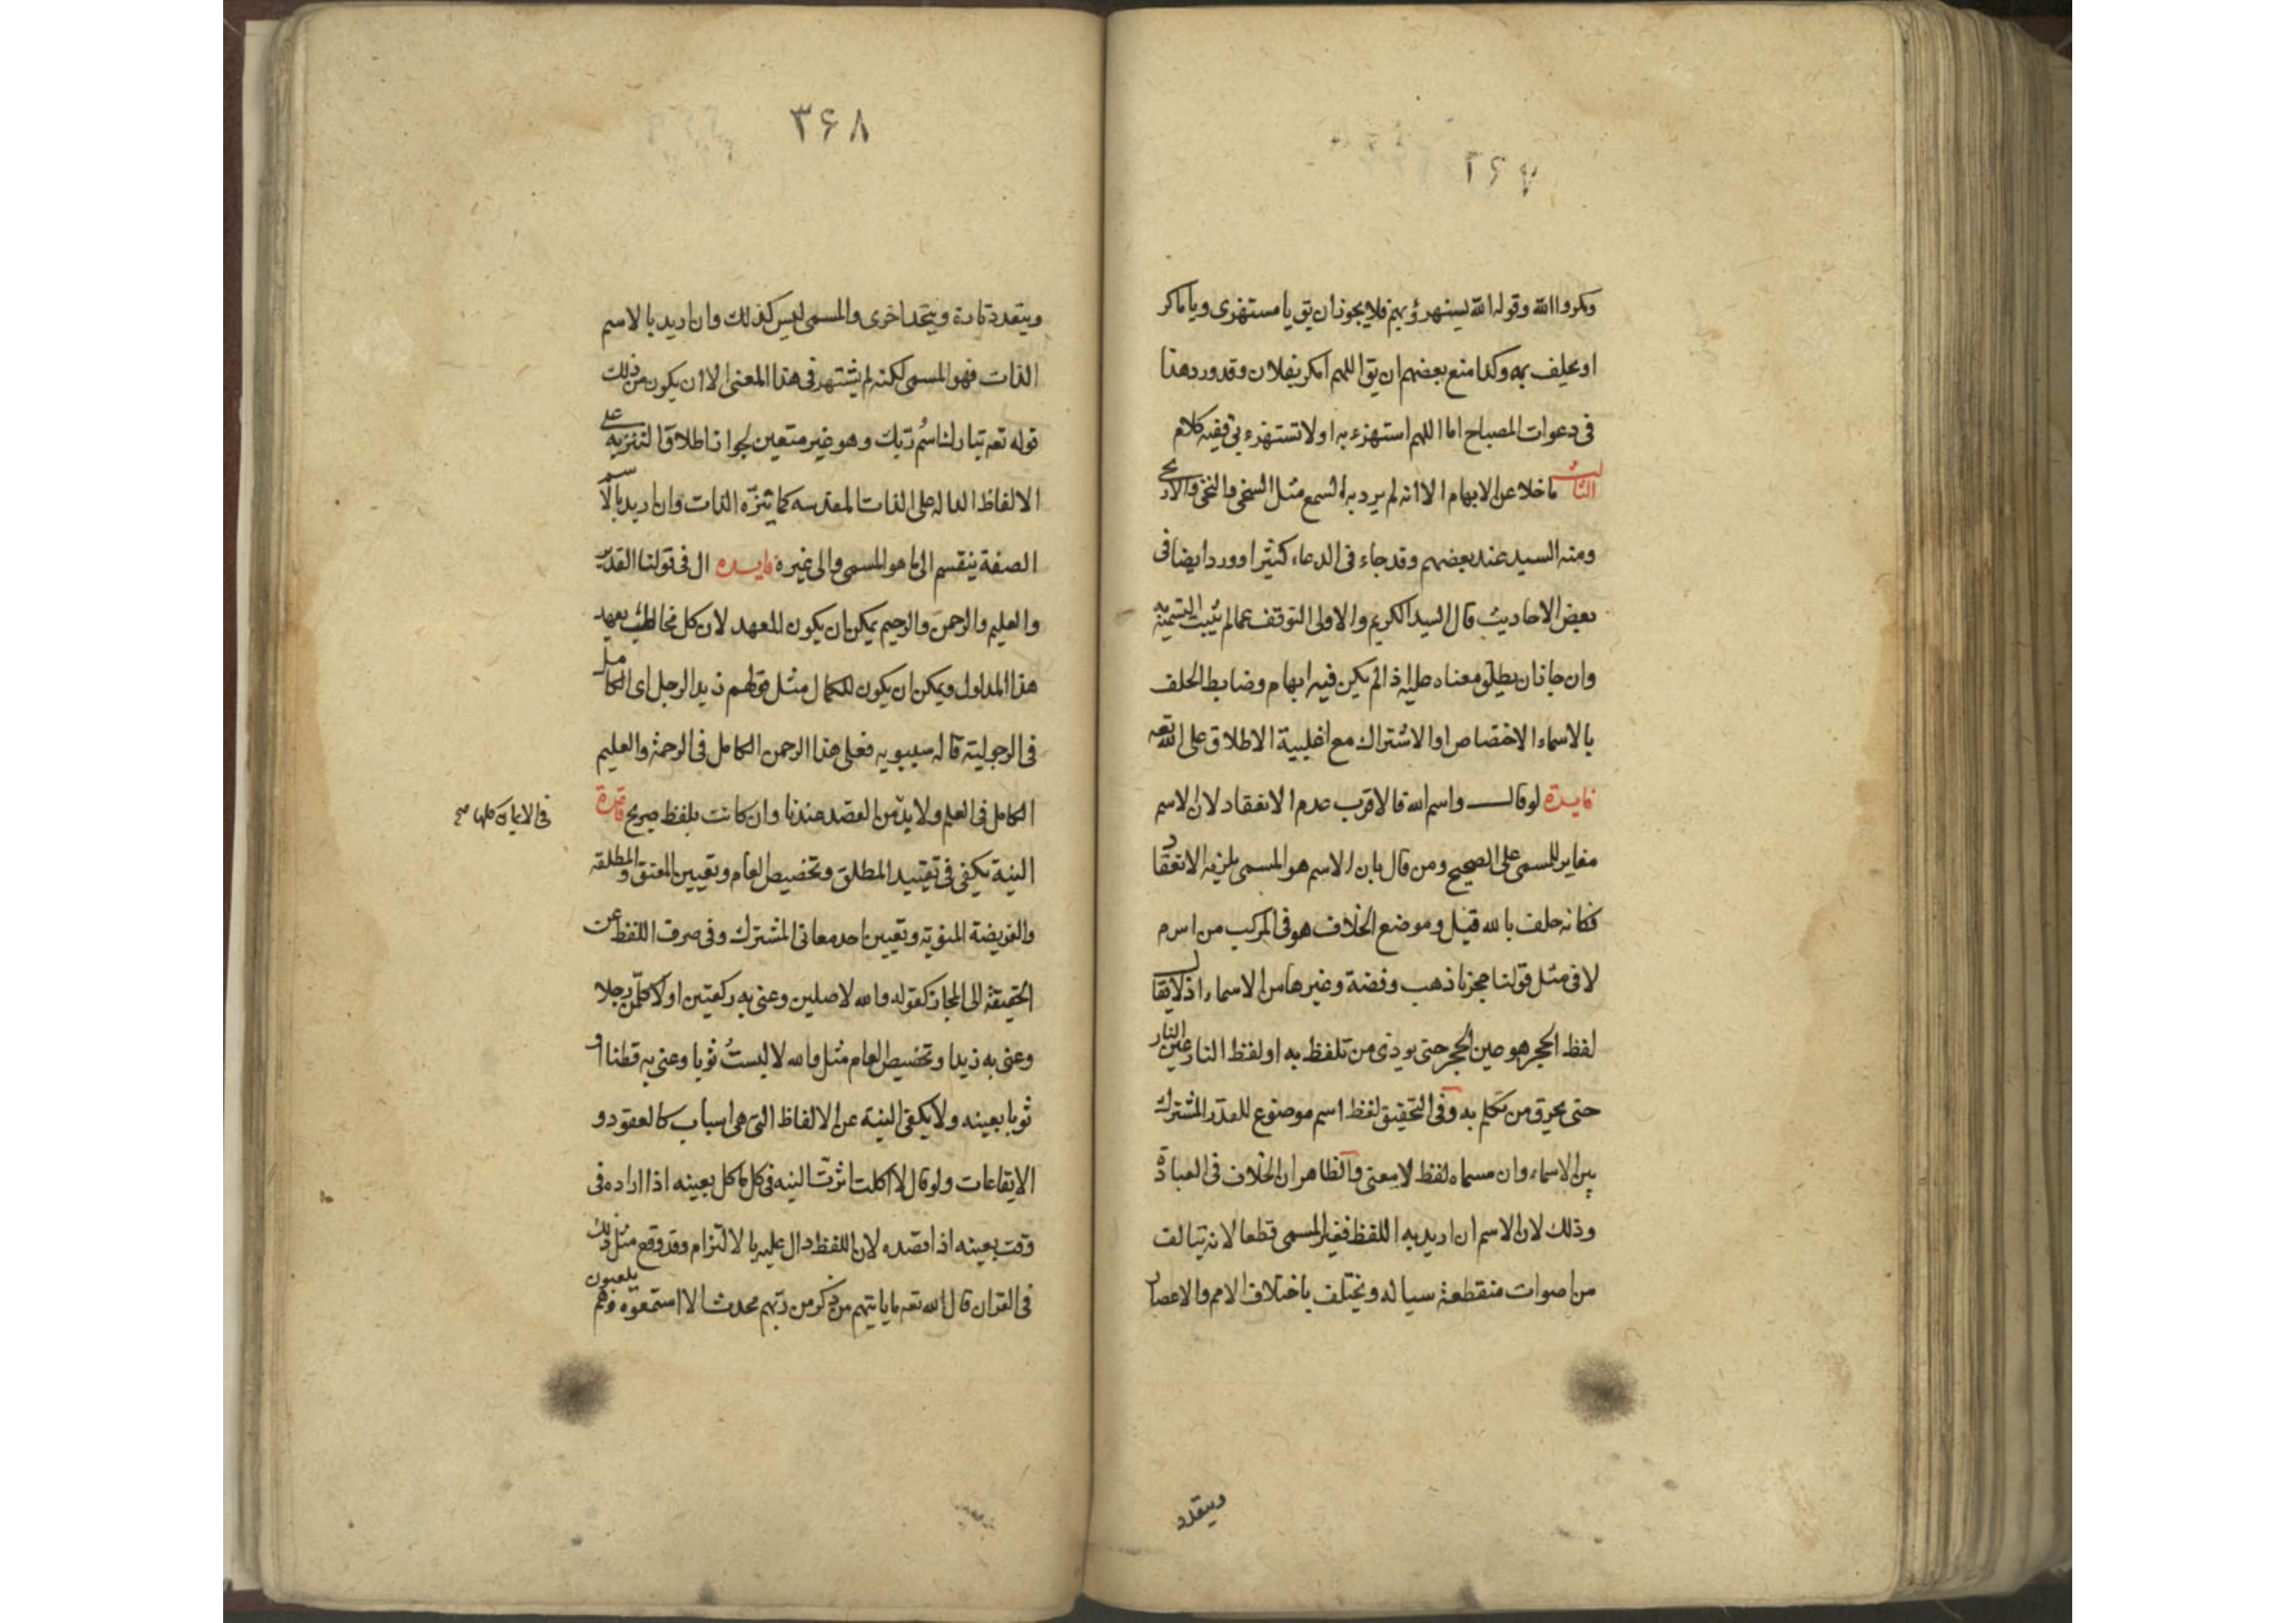 ۳۶۷
ومكروا الله وقوله الله يستهزؤ بهم فلا يجوز ان يق يا مستهزى ويا ماكر
او يحلف به وكذا منع بعضهم ان يق اللهم امكر بفلان وقد ورد هذا
فى دعوات المصباح اما اللهم استهزء به او لا تستهزء بى ففيه كلام
الثالث ما خلا عن الايهام الا انه لم يرد به السمع مثل السخى والنخى والاريحى
ومنه السيد عند بعضهم وقد جاء فى الدعاء كثيرا وورد ايضا فى
بعض الاحاديث قال السيد الكريم والاولى التوقف عما لم يثبت التسمية به
وان جاز ان يطلق معناه عليه اذا لم يكن فيه ايهام وضابط الحلف
بالاسماء الاختصاص او الاشتراك مع اغلبية الاطلاق على الله تعه
فايدة لو قال واسم الله فالاقرب عدم الانعقاد لان الاسم
مغاير للمسمى على الصحيح ومن قال بان الاسم هو المسمى يلزمه الانعقاد
فكانه حلف بالله قيل وموضع الخلاف هو فى المركب من اس م
لا فى مثل قولنا حجر نا ذهب وفضة وغيرها من الاسماء اذ لا يقال
لفظ الحجر هو عين الحجر حتى يوذى من تلفظ به او لفظ النار عين النار
حتى يحرق من تكلم به وفى التحقيق لفظ اسم موضوع للقدر المشترك
بين الاسماء وان مسماه لفظ لا معنى والظاهر ان الخلاف فى العبارة
وذلك لان الاسم ان اريد به اللفظ فغير المسمى قطعا لانه يتالف
من اصوات منقطعة سيالة ويختلف باختلاف الامم والاعصار
ويتعدد
۳۶۸
ويتعدد تارة ويتحد اخرى والمسمى ليس كذلك وان اريد بالاسم
الذات فهو المسمى لكنه لم يشتهر فى هذا المعنى الا ان يكون من ذلك
قوله تعه تبارك اسم ربك وهو غير متعين لجواز اطلاق التنزيه على
الالفاظ الدالة على الذات المقدسه كما تنزه الذات وان اريد بالاسم
الصفة ينقسم الى ما هو المسمى والى غيره فايده ال فى قولنا القدير
والعليم والرحمن والرحيم يمكن ان يكون للعهد لان كل مخاطب يعهد
هذا المدلول ويمكن ان يكون للكمال مثل قولهم زيد الرجل اى الكامل
فى الرجولية قاله سيبويه فعلى هذا الرحمن الكامل فى الرحمة والعليم
الكامل فى العلم ولا بد من القصد عندنا وان كانت بلفظ صريح قاعدة
فى الايمان كلها صح
النية يكفى فى تقييد المطلق وتخصيص العام وتعيين المعتق والمطلقه
والفريضة المنوية وتعيين احد معانى المشترك وفى صرف اللفظ عن
الحقيقة الى المجاز كقوله والله لاصلين وعنى به ركعتين او لاكلمن رجلا
وعنى به زيدا وتخصيص العام مثل والله لا لبستُ ثوبا وعنى به قطنا او
ثوبا بعينه ولا يكفى النية عن الالفاظ التى هى اسباب كالعقود و
الايقاعات ولو قال لا اكلت اثرت النيه فى كل ماكل بعينه اذا اراده فى
وقت بعينه اذا قصده لان اللفظ دال عليه بالالتزام وقد وقع مثل ذلك
فى القران قال الله تعه ما ياتيهم من ذكر من ربهم محدث الا استمعوه وهم يلعبون